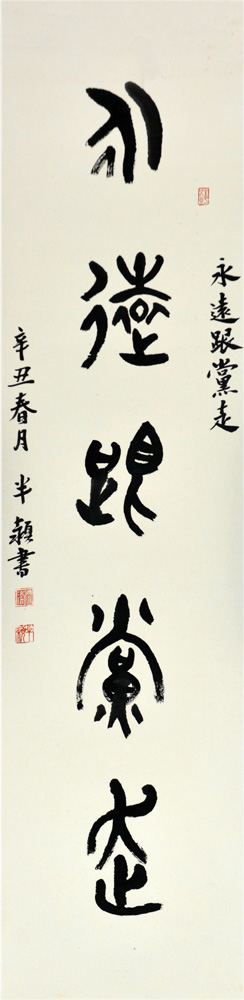 永遠跟黨走
永遠跟黨走
辛丑春月 半顛書